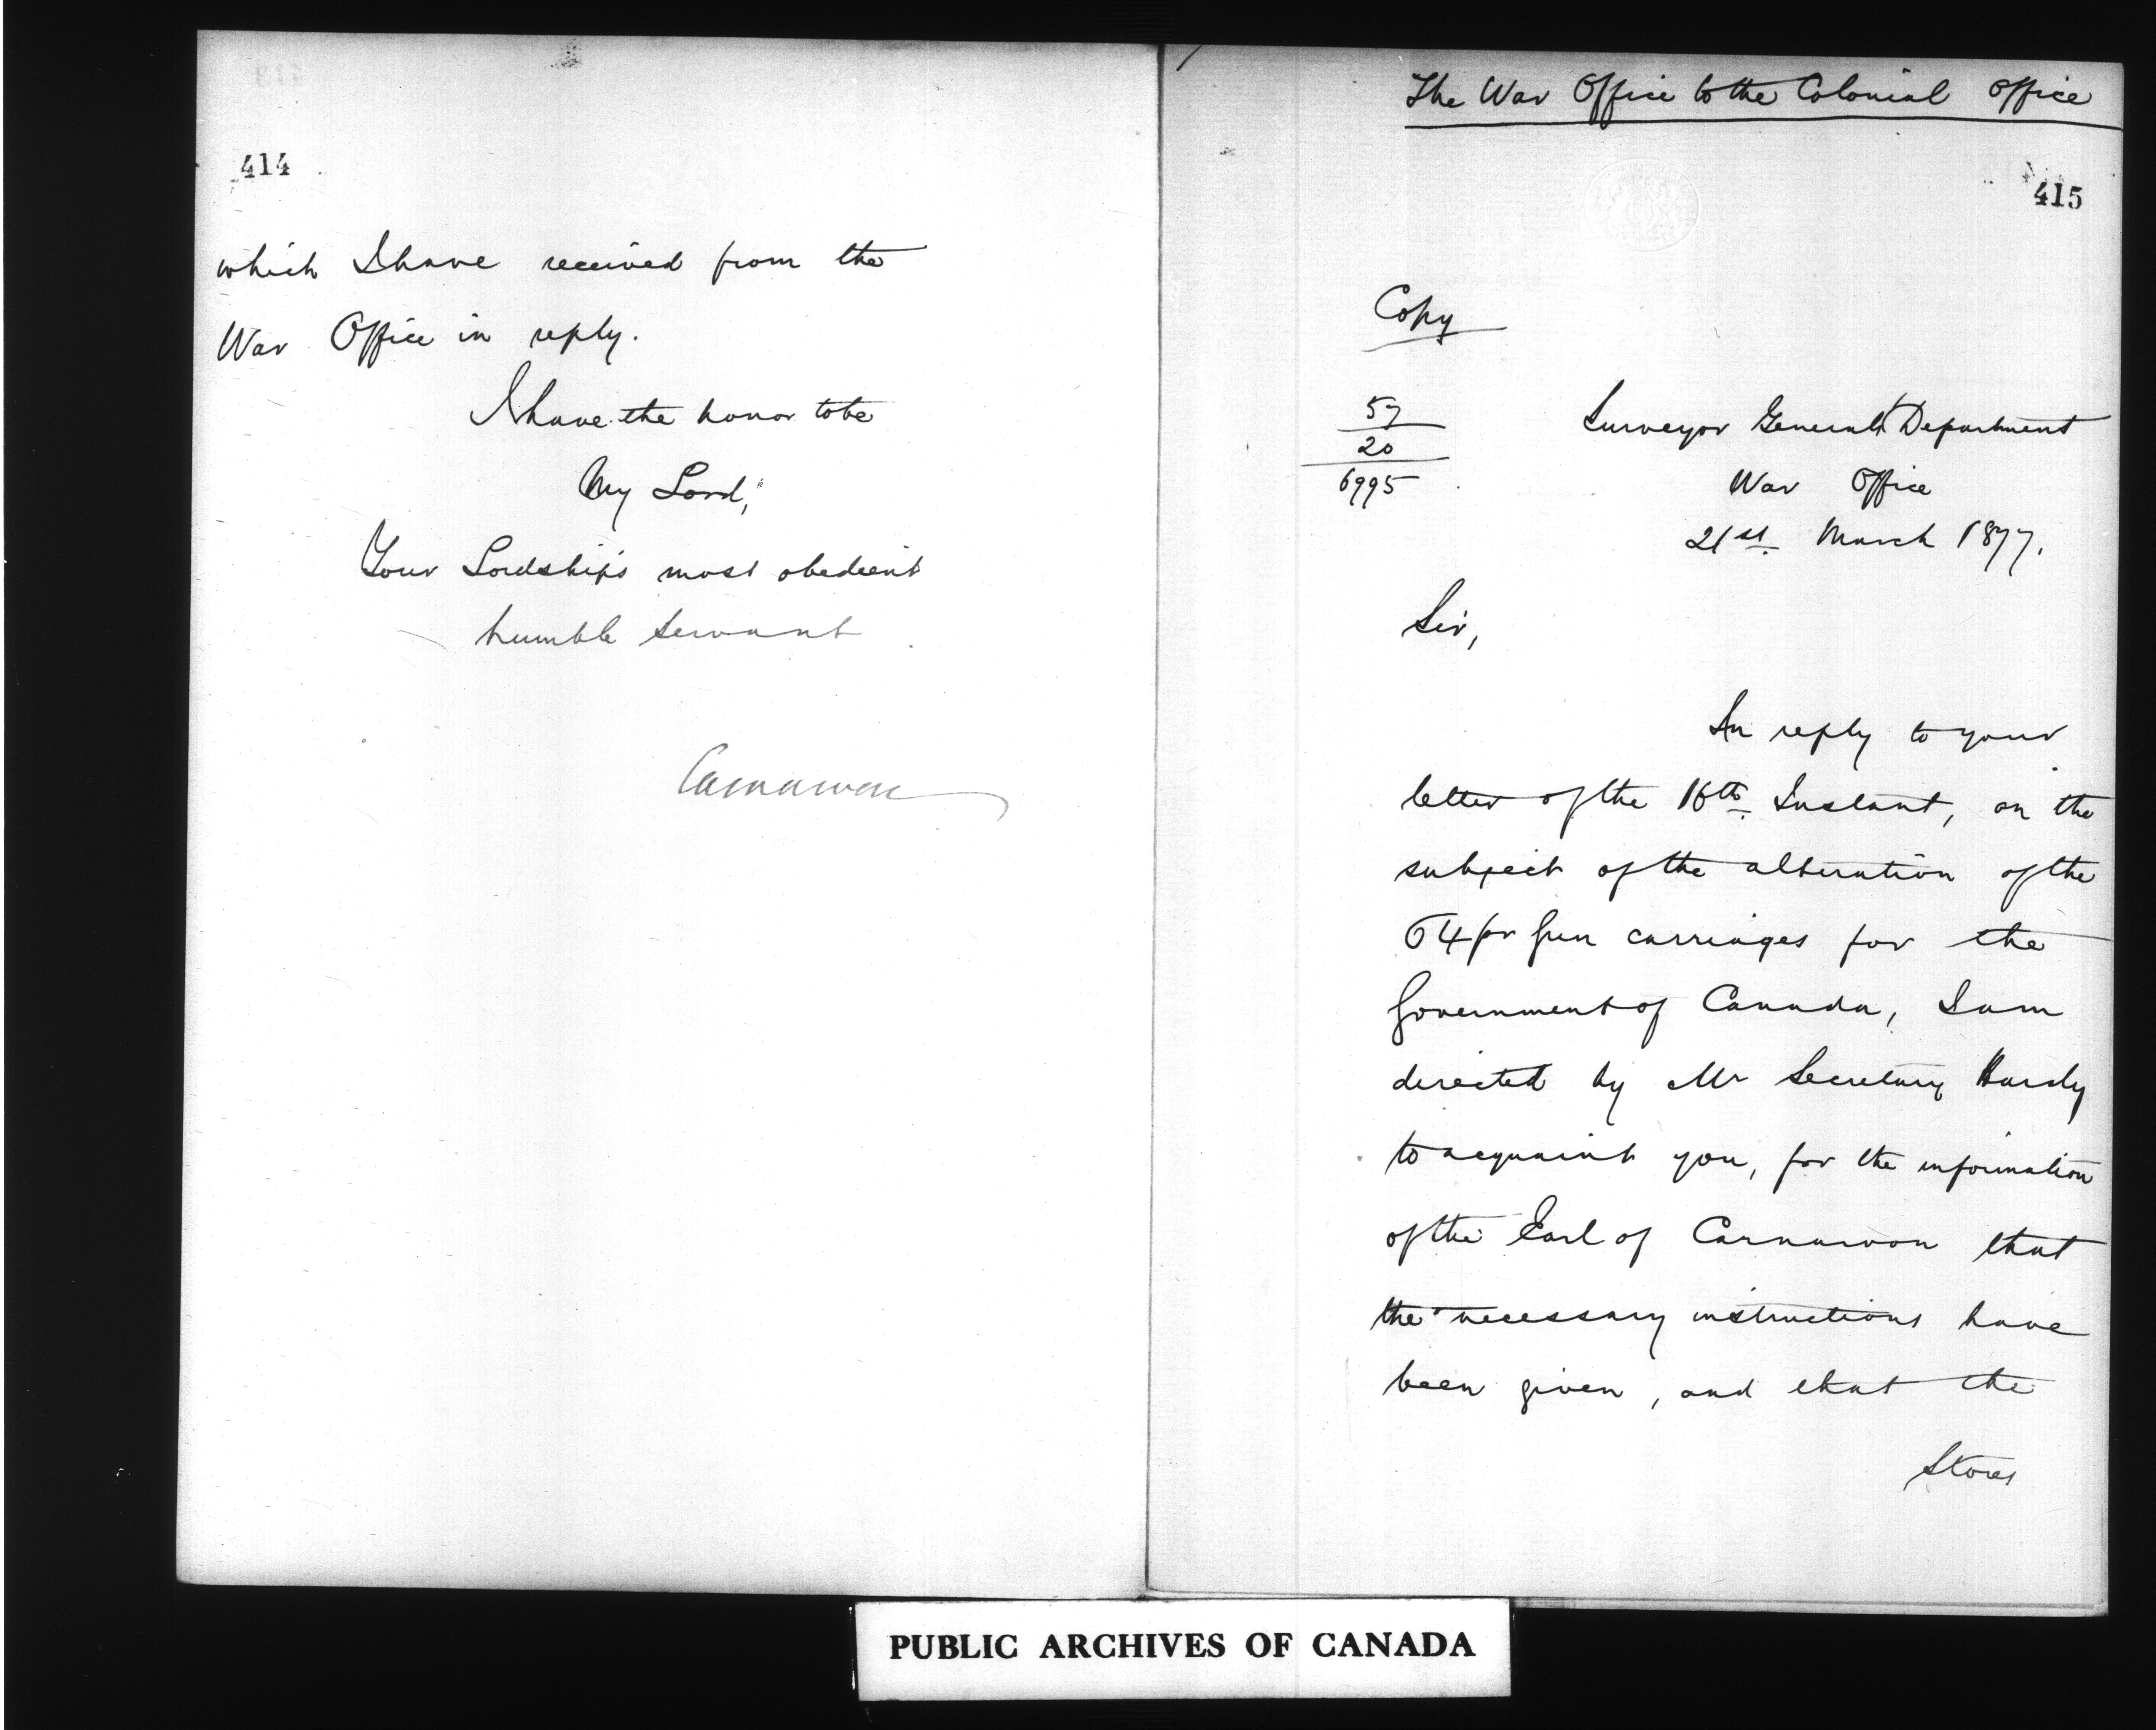 414
which I have received from the
War Office in reply.
I have the honor to be
My Lord,
Your Lordship's most obedient
humble servant
Carnarvon
The War Office to the Colonial Office
415
Copy
57
20
6995
Surveyor General's Department
War Office
21st March 1877.
Sir,
In reply to your
letter of the 16th Instant, on the
subject of the alteration of the
64 pr Gun carriages for the
Government of Canada, I am
directed by Mr Secretary Hardy
to acquaint you, for the information
of the Earl of Carnarvon that
the necessary instructions have
been given, and that the
Stores
PUBLIC ARCHIVES OF CANADA